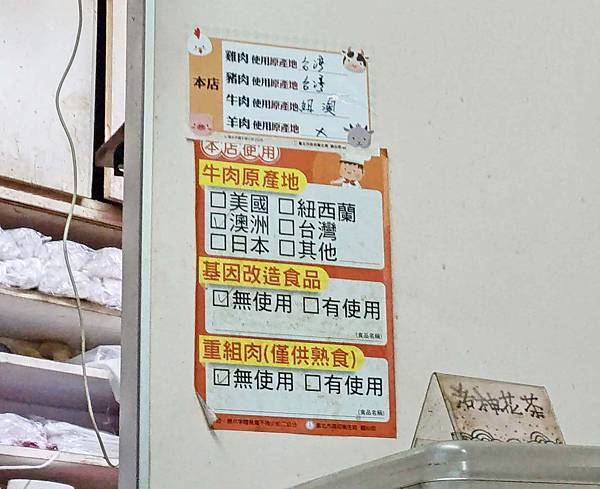 本店
雞肉 使用原產地 台灣
豬肉 使用原產地 台灣
牛肉 使用原產地 紐 澳
羊肉 使用原產地
本店使用
牛肉原產地
□美國 □紐西蘭
☑澳洲 □台灣
□日本 □其他
基因改造食品
☑無使用 □有使用
(食品名稱)
重組肉(僅供熟食)
☑無使用 □有使用
(食品名稱)
臺北市政府衛生局 關心您
洛神花茶